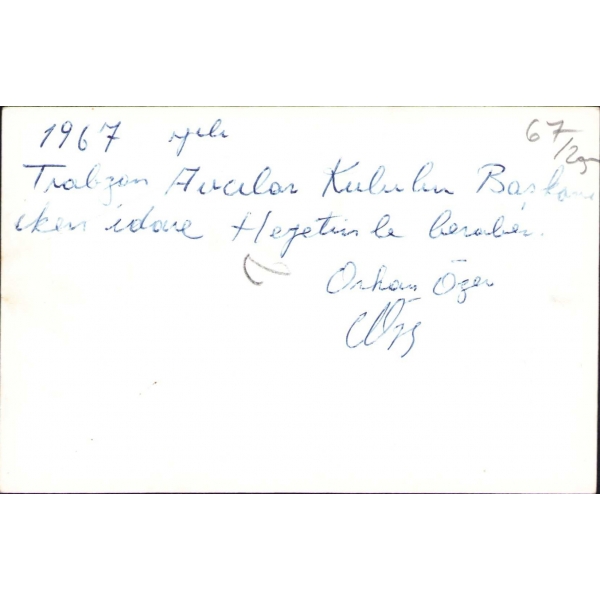 1967 yılı
67/
Trabzon Avcılar Kulubu Başkanı
iken idare Heyetimle beraber.
Orhan Özer